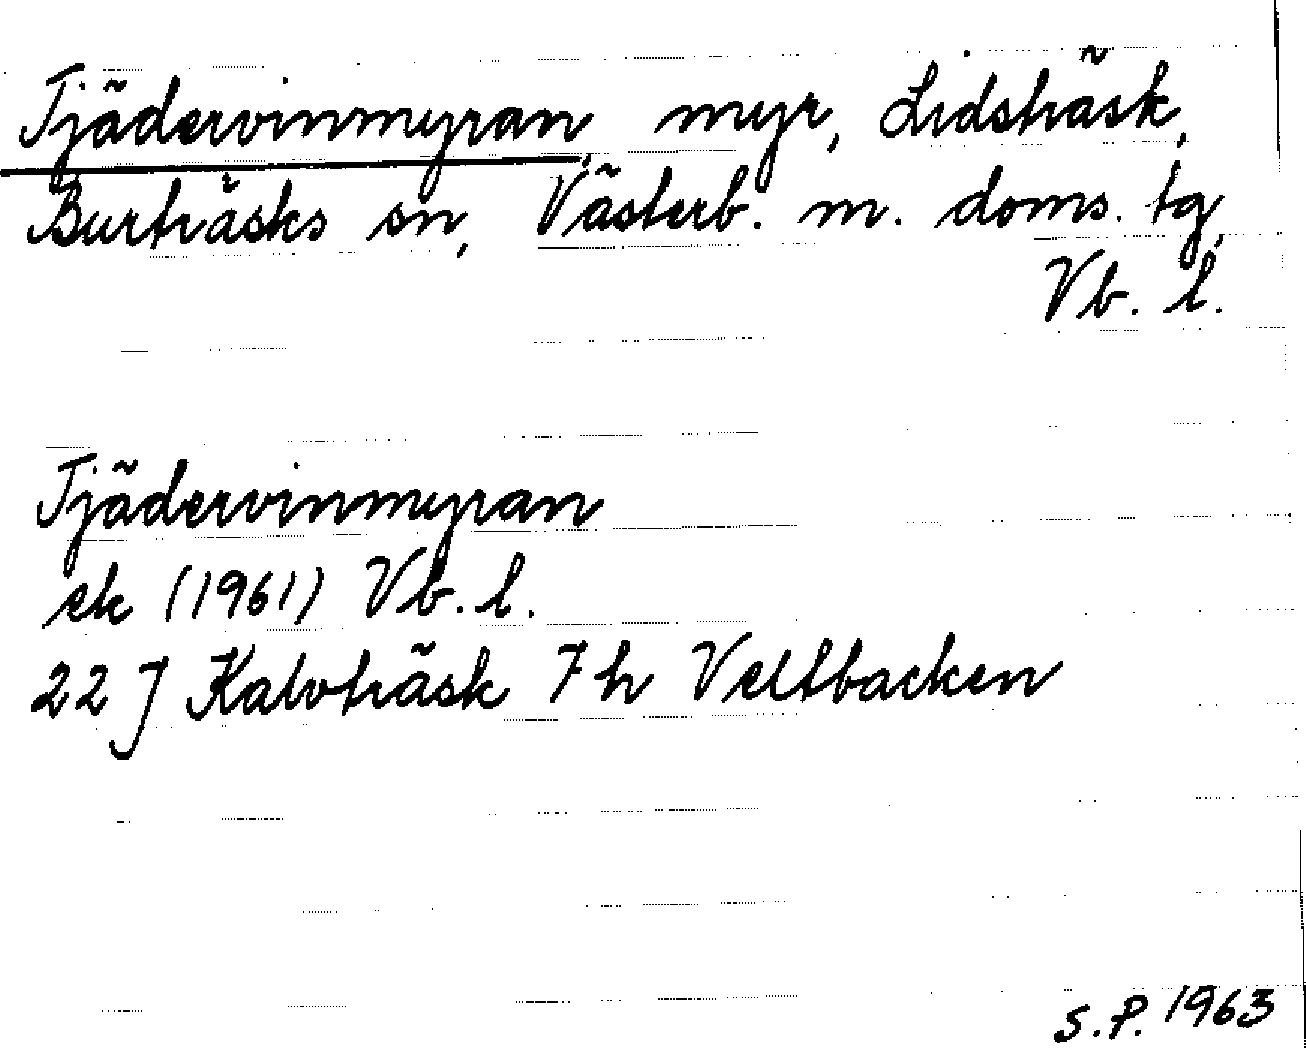 Tjädervinmyran, myr, Lidsträsk,
Burträsks sn, Västerb. m. doms. tg,
Vb. l.
Tjädervinmyran
ek (1961) Vb. l.
22 J Kalvträsk 7 h Veltbacken
S.P. 1963